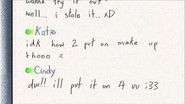 wanna try it out
well.. i stole it..xD
Katie
idk how 2 put on make up
thooo :c
Cindy
duh!! ill put it on 4 uu :33